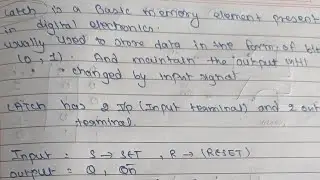 Latch is a Basic memory element present
in digital electronics.
usually used to store data in the form of bit
(0, 1). And maintain the output till
changed by input signal
LATCH has 2 I/p (Input terminal) and 2 out
terminal.
Input : S → SET , R → (RESET)
output = Q,